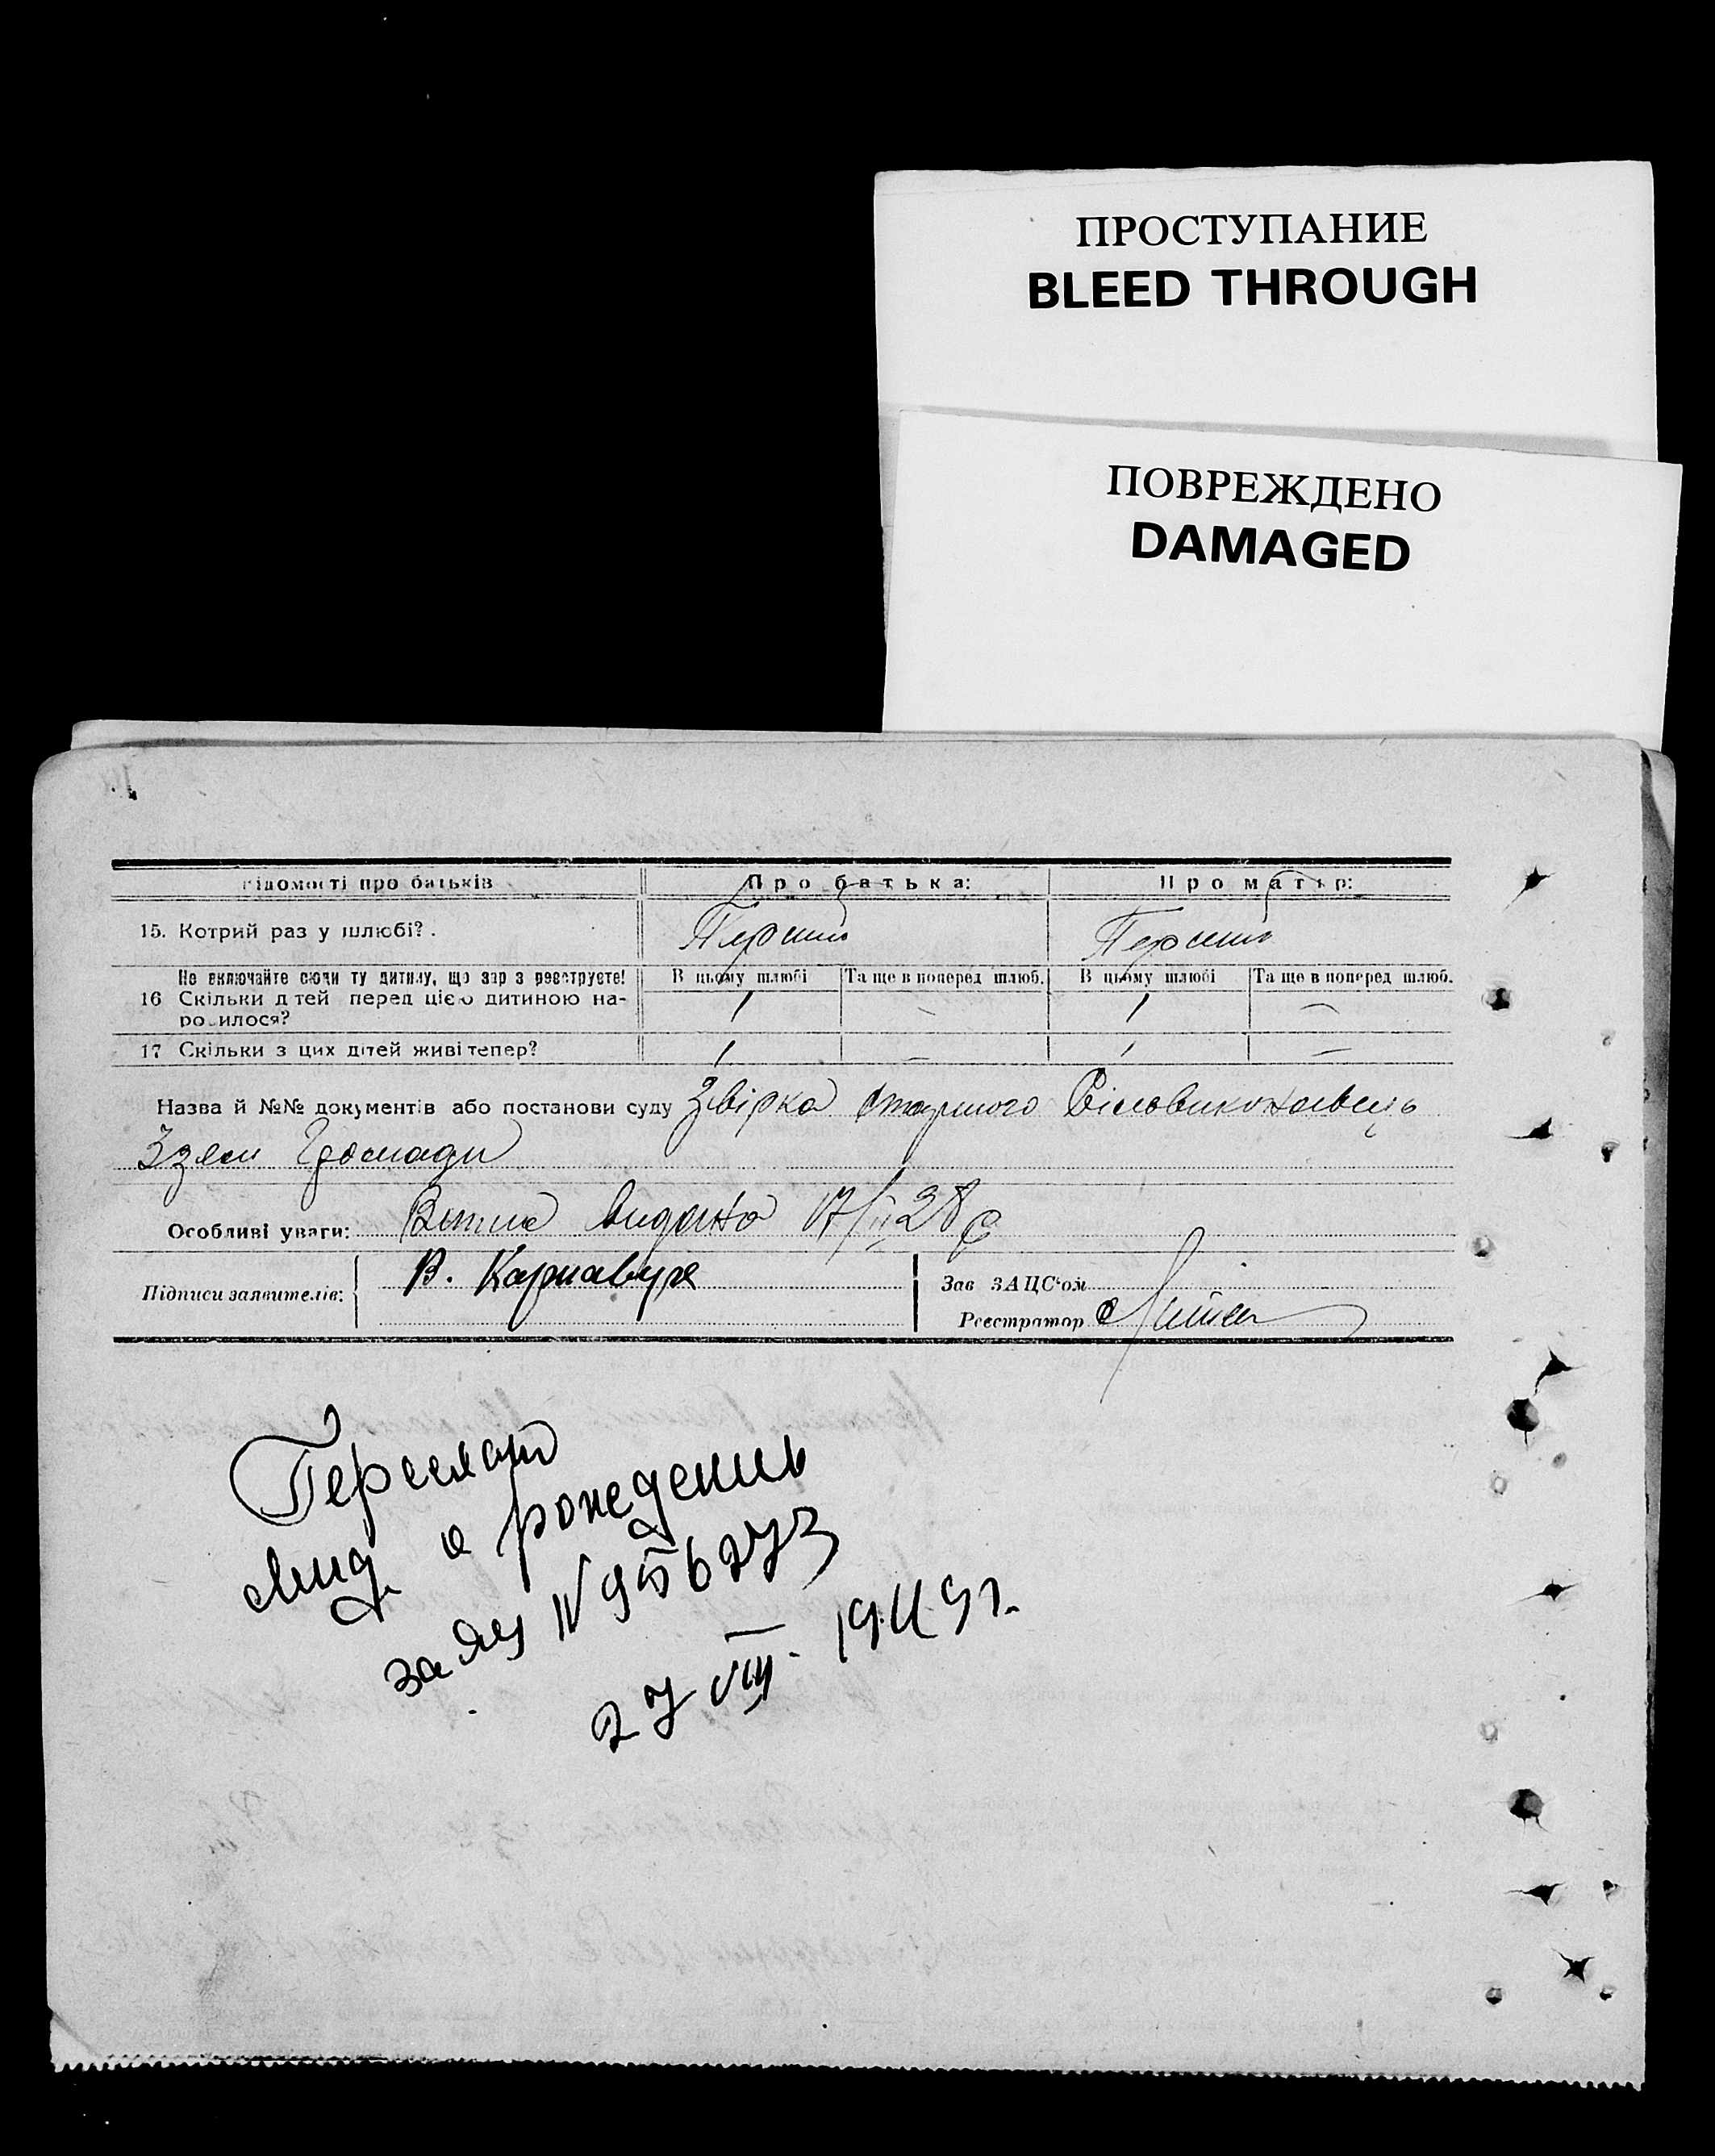 ПРОСТУПАНИЕ
BLEED THROUGH
ПОВРЕЖДЕНО
DAMAGED
відомості про батьків Про батька: Про матір:
15. Котрий раз у шлюбі?. Перший Перший
Не включайте сюди ту дитину, що зараз реєструєте! В цьому шлюбі Та ще в поперед шлюб. В цьому шлюбі Та ще в поперед шлюб.
16 Скільки дітей перед цією дитиною на- 1 — 1 —
родилося?
17 Скільки з цих дітей живі тепер? 1 — 1 —
Назва й №№ документів або постанови суду Звірка
Громади
Особливі уваги: видано 17/II 28 р
Підписи заявителів: В. Карнавуха Зав ЗАЦС'ом
Реєстратор
о рождении
за № 956273
27 VIII. 1949 г.